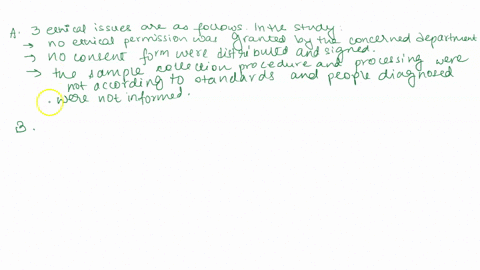 A. 3 ethical issues are as follows. In the study.
→ no ethical permission was granted by the concerned department
→ no consent form were distributed and signed.
→ the sample collection procedure and processing were
not according to standards and people diagnosed
were not informed.
B.